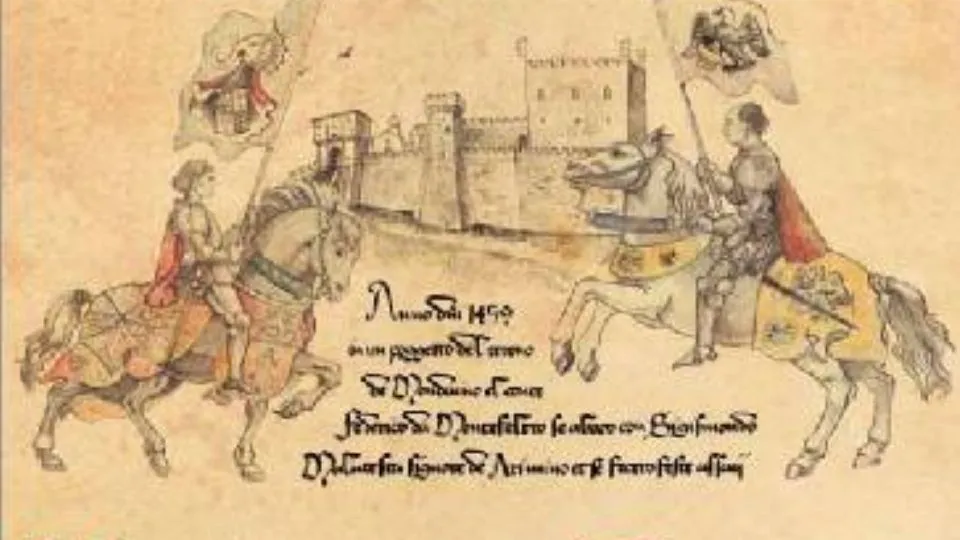 Anno dni 1459
in un poggetto del
de Monduino el conte
Federico da Montefeltro se aboco con Sigismondo
Malatesta signore de Arimino et se fecero feste assai